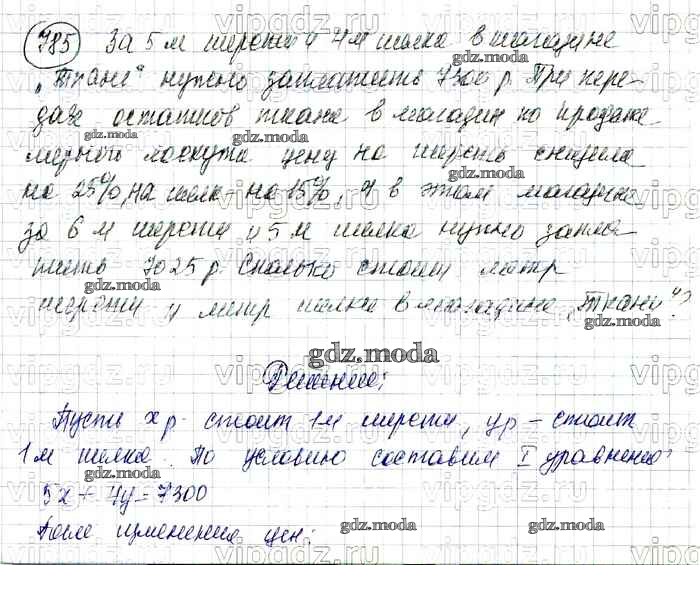 785 За 5 м шерсти и 4 м шелка в магазине
"Ткани" нужно заплатить 7300 р. При пере-
даче остатков ткани в магазин по продаже
мерного лоскута цену на шерсть снизили
на 25%, на шелк на 15%, и в этом магазине
за 6 м шерсти и 5 м шелка нужно запла-
тить 7025 р. Сколько стоит метр
шерсти и метр шелка в магазине "Ткани"?
Решение:
Пусть x р. стоит 1 м шерсти, y р - стоит
1 м шелка. По условию составим I уравнение:
5x + 4y = 7300
После изменения цен:
gdz.moda
vipgdz.ru